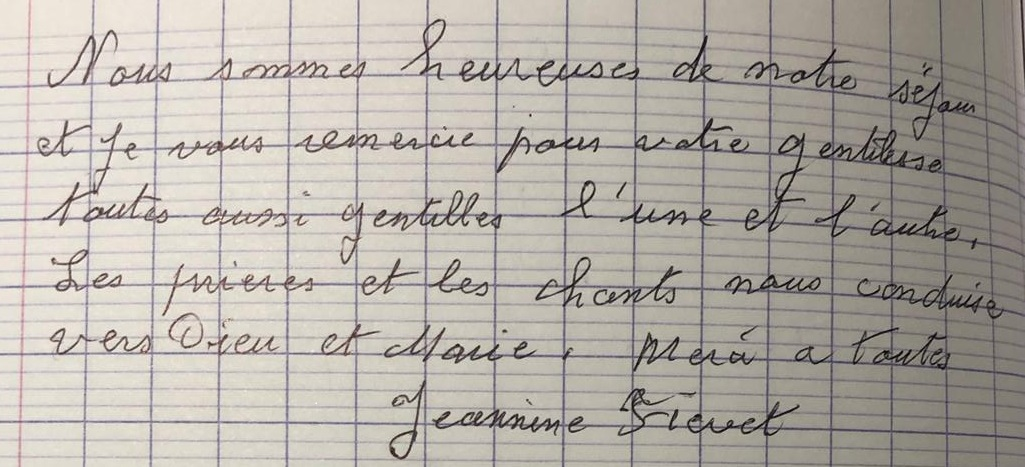 Nous sommes heureuses de notre séjour
et je vous remercie pour votre gentilesse
toutes aussi gentilles l'une et l'autre.
Les prieres et les chants nous conduise
vers Dieu et Marie. Merci a toutes
Jeannine Fievet